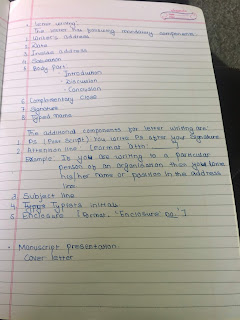 Letter writing:
The letter has following mandatory components:
1. Writer's address
2. Date
3. Inside address
4. Salutation
5. Body Part
- Introduction
- Discussion
- Conclusion
6. Complimentary Close
7. Signature
8. Typed name
The additional components for letter writing are:
1. PS (Post Script) You write PS after your signature
2. Attention line : (Format Attn:
Example: If you are writing to a particular
person of an organisation then you write
his/her name or position in the address
line
3. Subject line
4. Typist initials
5. Enclosure [Format - "Enclosure no."]
Manuscript presentation
Cover letter